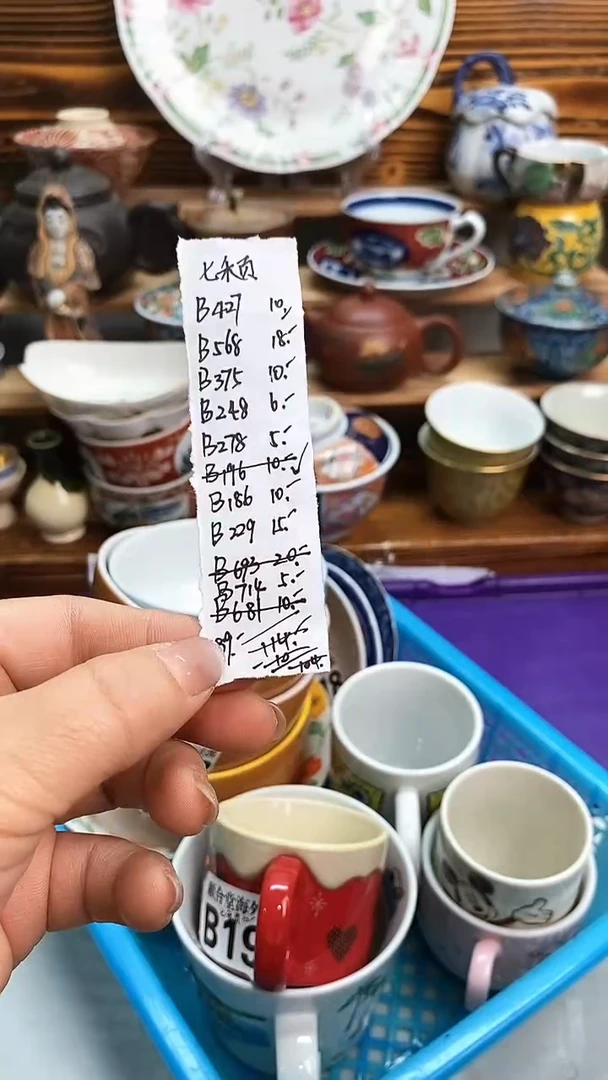 B427 10.-
B568 18.-
B375 10.-
B248 6.-
B278 5.-
B196 10.-
B186 10.-
B229 15.-
B693 20.-
B714 5.-
B681 10.-
89.- 114.-
-10
104.-
B19